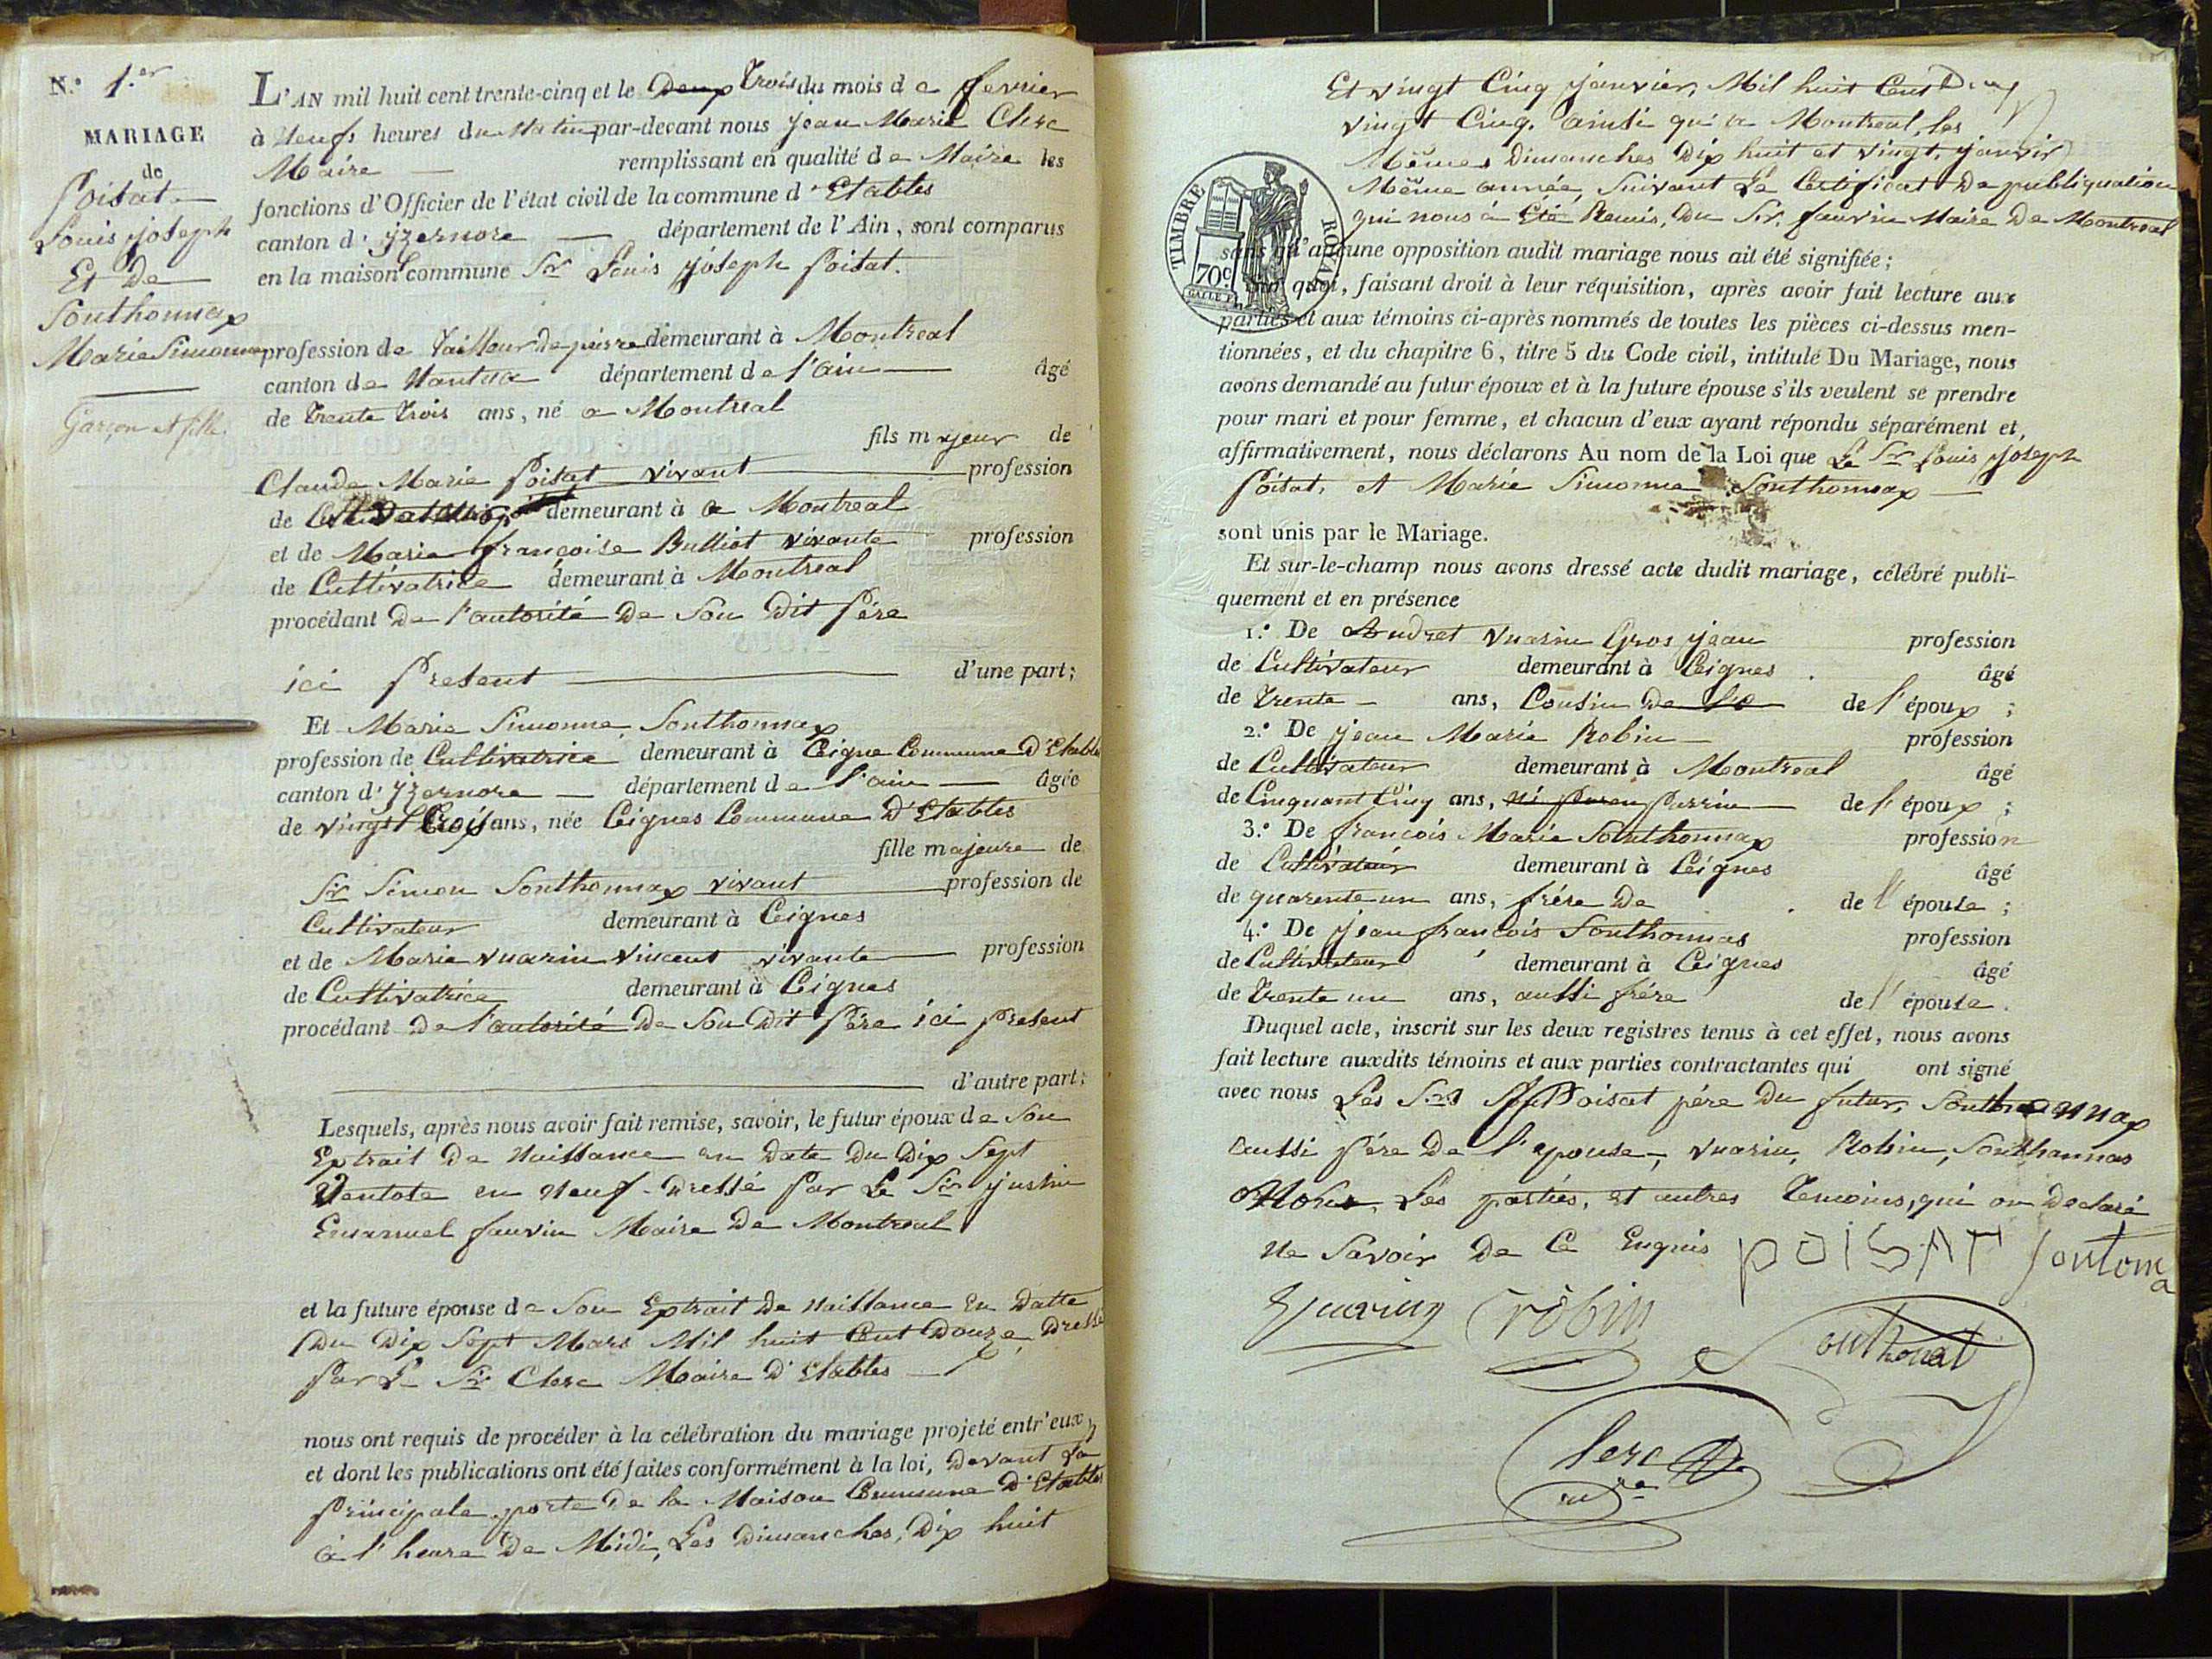 N.° 1.er
MARIAGE
de
Poisat
Louis joseph
Et De
Sonthonnax
Marie Simonne
Garçon et fille.
L'AN mil huit cent trente-cinq et le Deux Trois du mois d e fevrier
à Neufs heures du Matin par-devant nous jean Marie Clerc
Maire — remplissant en qualité de Maire les
fonctions d'Officier de l'état civil de la commune d'Etables
canton d'yzernore — département de l'Ain, sont comparus
en la maison commune Sr Louis joseph Poisat.
profession de Tailleur de pierre demeurant à Montreal
canton de Nantua département de l'ain — âgé
de Trente Trois ans, né a Montreal
fils majeur de
Claude Marie Poisat vivant — profession
de demeurant à a Montreal
et de Marie françoise Bulliot vivante profession
de Cultivatrice demeurant à Montreal
procédant De l'autorité De Son Dit Pére
ici Present — d'une part;
Et Marie Simonne Sonthonnax
profession de Cultivatrice demeurant à Ceigne Commune D'Etables
canton d'yzernore — département de l'ain — âgée
de vingt Trois ans, née Ceignes Commune D'Etables
fille majeure de
Sr Simon Sonthonnax vivant — profession de
Cultivateur demeurant à Ceignes
et de Marie vuarin vincent vivante — profession
de Cultivatrice demeurant à Ceignes
procédant De l'autorité De Son Dit Pére ici Present
— d'autre part;
Lesquels, après nous avoir fait remise, savoir, le futur époux de Son
Extrait De Naissance en Date Du Dix Sept
Ventose en Neuf - Dressé Par Le Sr justin
Emanuel fauvin Maire De Montreal
et la future épouse de Son Extrait De Naissance En Datte
Du Dix Sept Mars Mil huit Cent Douze, Dressé
Par Le Sr Clerc Maire D'Etables —
nous ont requis de procéder à la célébration du mariage projeté entr'eux,
et dont les publications ont été faites conformément à la loi, Devant La
Principale porte De la Maison Commune D'Etables
à l'heure De Midi, Les Dimanches, Dix huit
Et vingt Cinq janvier, Mil huit Cent
vingt Cinq. ainsi qu'a Montreal, les
Mêmes Dimanches Dix huit et vingt, janvir
Même année, Suivant Le Certificat De publiquation
qui nous à Eté Remis, Du Sr. fauvin Maire De Montreal
TIMBRE ROYAL
70c
sans qu'aucune opposition audit mariage nous ait été signifiée;
Sur quoi, faisant droit à leur réquisition, après avoir fait lecture aux
parties et aux témoins ci-après nommés de toutes les pièces ci-dessus men-
tionnées, et du chapitre 6, titre 5 du Code civil, intitulé Du Mariage, nous
avons demandé au futur époux et à la future épouse s'ils veulent se prendre
pour mari et pour femme, et chacun d'eux ayant répondu séparément et,
affirmativement, nous déclarons Au nom de la Loi que Le Sr Louis joseph
Poisat, et Marie Simonne Sonthonnax —
sont unis par le Mariage.
Et sur-le-champ nous avons dressé acte dudit mariage, célébré publi-
quement et en présence
1.° De Andret vuarin Gros jean profession
de Cultivateur demeurant à Ceignes âgé
de Trente — ans, Cousin De de l'époux;
2.° De jean Marie Robin — profession
de Cultivateur demeurant à Montreal âgé
de Cinquant Cinq ans, — de l'époux;
3.° De francois Marie Sonthonnax profession
de Cultivateur demeurant à Ceignes âgé
de quarente un ans, frére De de l'épouse;
4.° De jean francois Sonthonnas profession
de Cultivateur demeurant à Ceignes âgé
de Trente un ans, aussi frére de l'épouse.
Duquel acte, inscrit sur les deux registres tenus à cet effet, nous avons
fait lecture auxdits témoins et aux parties contractantes qui ont signé
avec nous Les Srs Poisat pére Du futur, Sonthonnax
aussi Pére De l'epouse, vuarin, Robin, Sonthannas
Les partiés, et autres Temoins, qui on Declaré
Ne Savoir De Ce Enquis POISAT Sontona
vuarin robin Southonat
Clerc
mre